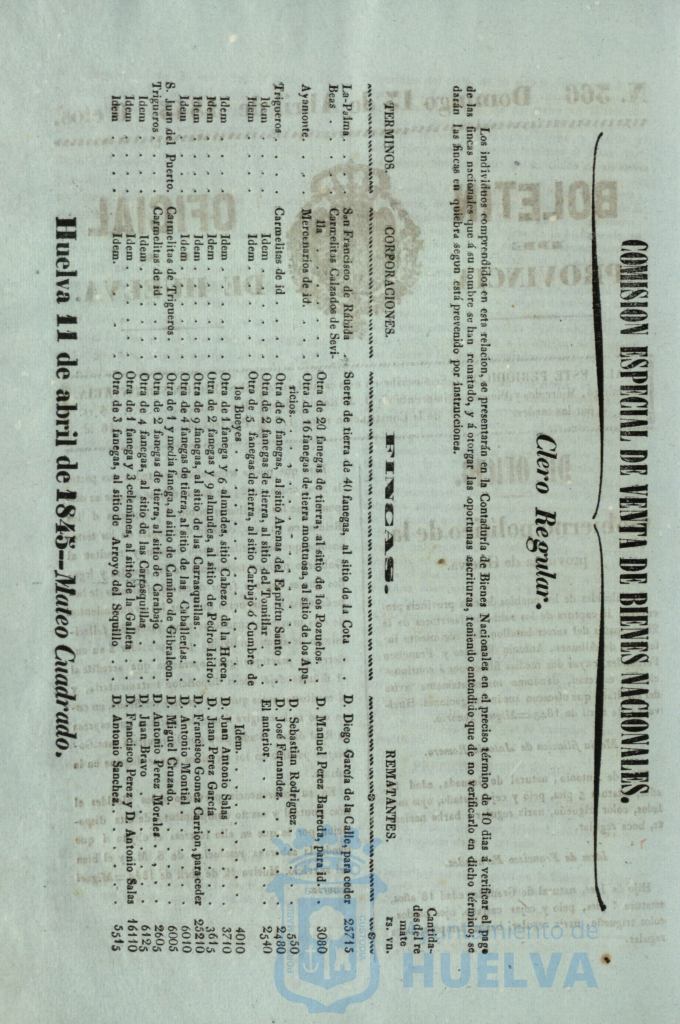 COMISION ESPECIAL DE VENTA DE BIENES NACIONALES.
Clero Regular.
Los individuos comprendidos en esta relacion, se presentarán en la Contaduría de Bienes Nacionales en el preciso término de 10 dias á verificar el pago
de las fincas nacionales que á su nombre se han rematado, y á otorgar las oportunas escrituras, teniendo entendido que de no verificarlo en dicho término; se
darán las fincas en quiebra segun está prevenido por instrucciones.
Cantida-
des del re
mate
TERMINOS. CORPORACIONES. FINCAS. REMATANTES. rs. vn.
La-Palma. . . San Francisco de Rábida . Suerte de tierra de 40 fanegas, al sitio de la Cota . . D. Diego García de la Calle, para ceder 25715
Beas . . . Carmelitas Calzados de Sevi-
lla . . . Otra de 20 fanegas de tierra, al sitio de los Pozuelos. . D. Manuel Perez Barreda, para id. . 3080
Ayamonte. . . Mercenarios de id. . . Otra de 16 fanegas de tierra montuosa, al sitio de los Apa-
ricios. . . . . . . . D. Sebastian Rodriguez . . . 550
Trigueros. . . Carmelitas de id . . . Otra de 6 fanegas, al sitio Arenas del Espíritu Santo . . D. José Fernandez. . . . 2480
Idem . . . Idem . . . Otra de 2 fanegas de tierra, al sitio del Tomillar . . El anterior. . . . . 2540
Idem . . . Idem . . . Otra de 5 fanegas de tierra, al sitio Carbajo ó Cumbre de
los Bueyes . . . . . Idem. . . . . 4010
Idem . . . Idem . . . Otra de 1 fanega y 6 almudes, sitio Cabezo de la Horca. D. Juan Antonio Salas . . . 3710
Idem . . . Idem . . . Otra de 2 fanegas y 9 almudes, al sitio de Pedro Isidro. D. Juan Perez García . . . 3615
Idem . . . Idem . . . Otra de 9 fanegas, al sitio de las Carrasquillas. . . D. Francisco Gomez Carrion, para ceder 25210
Idem . . . Idem . . . Otra de 4 fanegas de tierra, al sitio de las Caballerías. . D. Antonio Montiel . . . 6010
S. Juan del Puerto. Carmelitas de Trigueros . Otra de 1 y media fanega, al sitio de Camino de Gibraleon. D. Miguel Cruzado. . . . 6005
Trigueros. . . Carmelitas de id . . . Otra de 2 fanegas de tierra, al sitio de Carabajo . . D. Antonio Perez Morales . . . 2605
Idem . . . Idem . . . Otra de 4 fanegas, al sitio de las Carrasquillas . . D. Juan Bravo . . . . 6125
Idem . . . Idem . . . Otra de 1 fanega y 3 celemines, al sitio de la Galleta . D. Francisco Perez y D. Antonio Salas 16110
Idem . . . Idem. . . . Otra de 3 fanegas, al sitio de Arroyo del Sequillo . . D. Antonio Sanchez. . . . 5515
Huelva 11 de abril de 1845—Mateo Cuadrado.
Ayuntamiento de
HUELVA